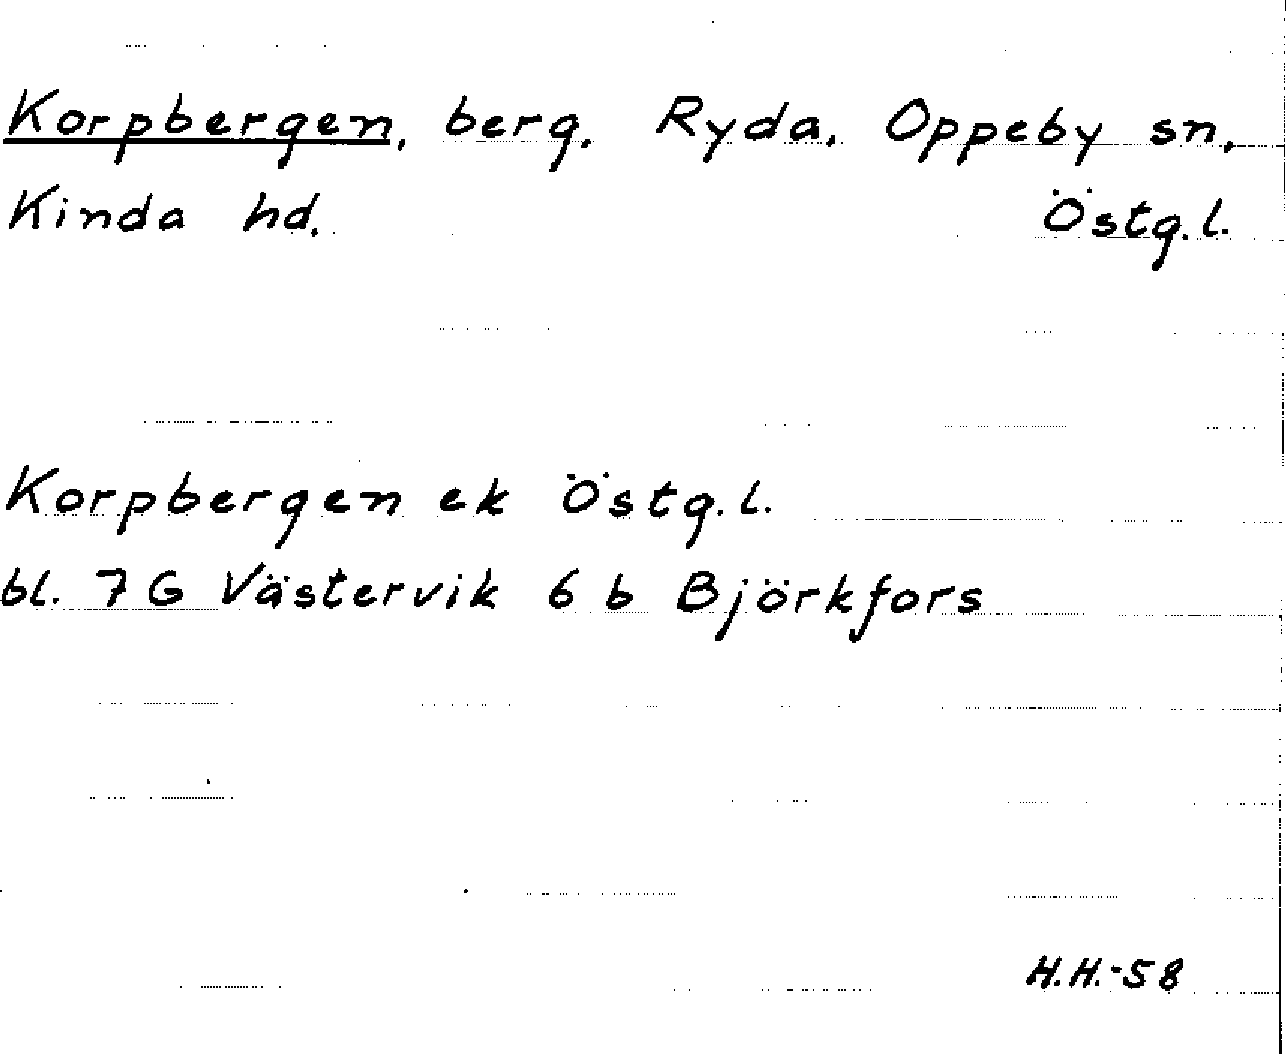 Korpbergen, berg, Ryda, Oppeby sn,
Kinda hd. Östg.l.
Korpbergen ek Östg.l.
bl. 7 G Västervik 6 b Björkfors
H.H.-58